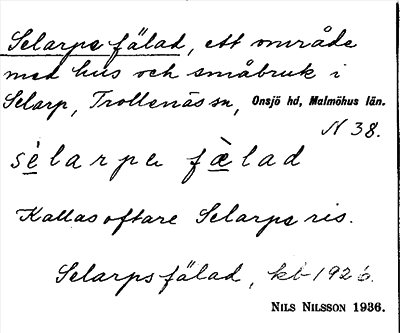 Selarpe fälad, ett område
med hus och småbruk i
Selarp, Trollenäs sn, Onsjö hd, Malmöhus län.
N 38.
sè larpa fæ̀lad
Kallas oftare Selarps ris.
Selarps fälad, kb 1926.
NILS NILSSON 1936.